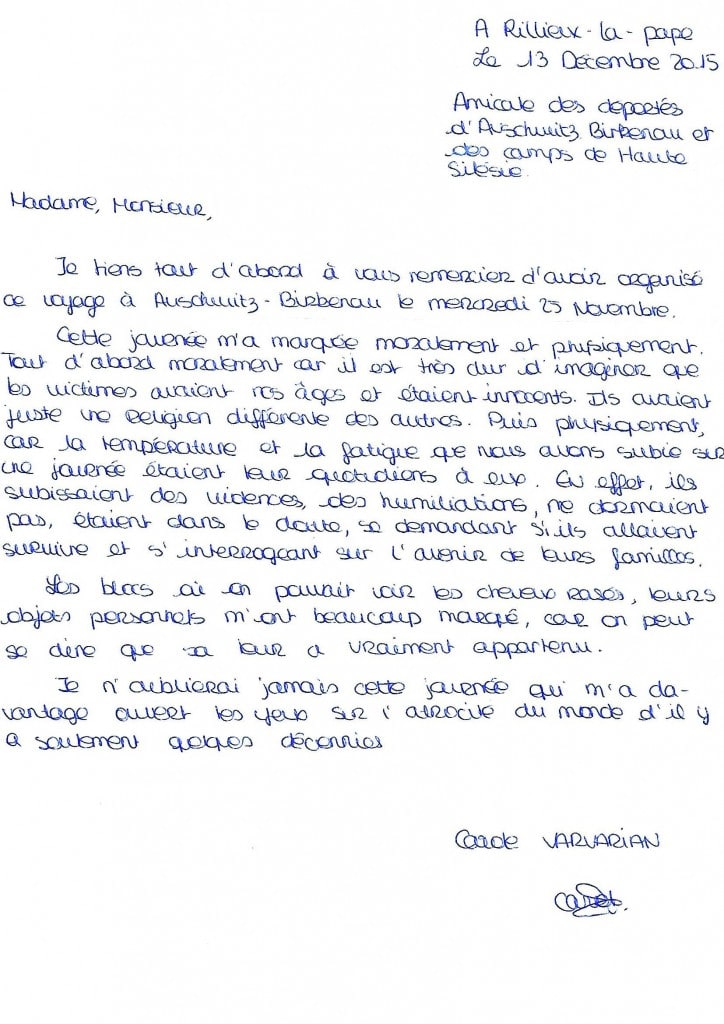 A Rillieux-la-pape
Le 13 Décembre 2015
Amicale des déportés
d'Auschwitz Birkenau et
des camps de Haute
Silésie.
Madame, Monsieur,
Je tiens tout d'abord à vous remercier d'avoir organisé
ce voyage à Auschwitz-Birkenau le mercredi 25 Novembre.
Cette journée m'a marquée moralement et physiquement.
Tout d'abord moralement car il est très dur d'imaginer que
les victimes avaient nos âges et étaient innocents. Ils avaient
juste une religion différente des autres. Puis physiquement,
car la température et la fatigue que nous avons subie sur
une journée étaient leur quotidiens à eux. En effet, ils
subissaient des violences, des humiliations, ne dormaient
pas, étaient dans le doute, se demandant s'ils allaient
survivre et s'interrogeant sur l'avenir de leurs familles.
Les blocs où on pouvait voir les cheveux rasés, leurs
objets personnels m'ont beaucoup marqué, car on peut
se dire que ça leur a vraiment appartenu.
Je n'oublierai jamais cette journée qui m'a da-
vantage ouvert les yeux sur l'atrocité du monde d'il y
a seulement quelques décennies
Carole VARVARIAN